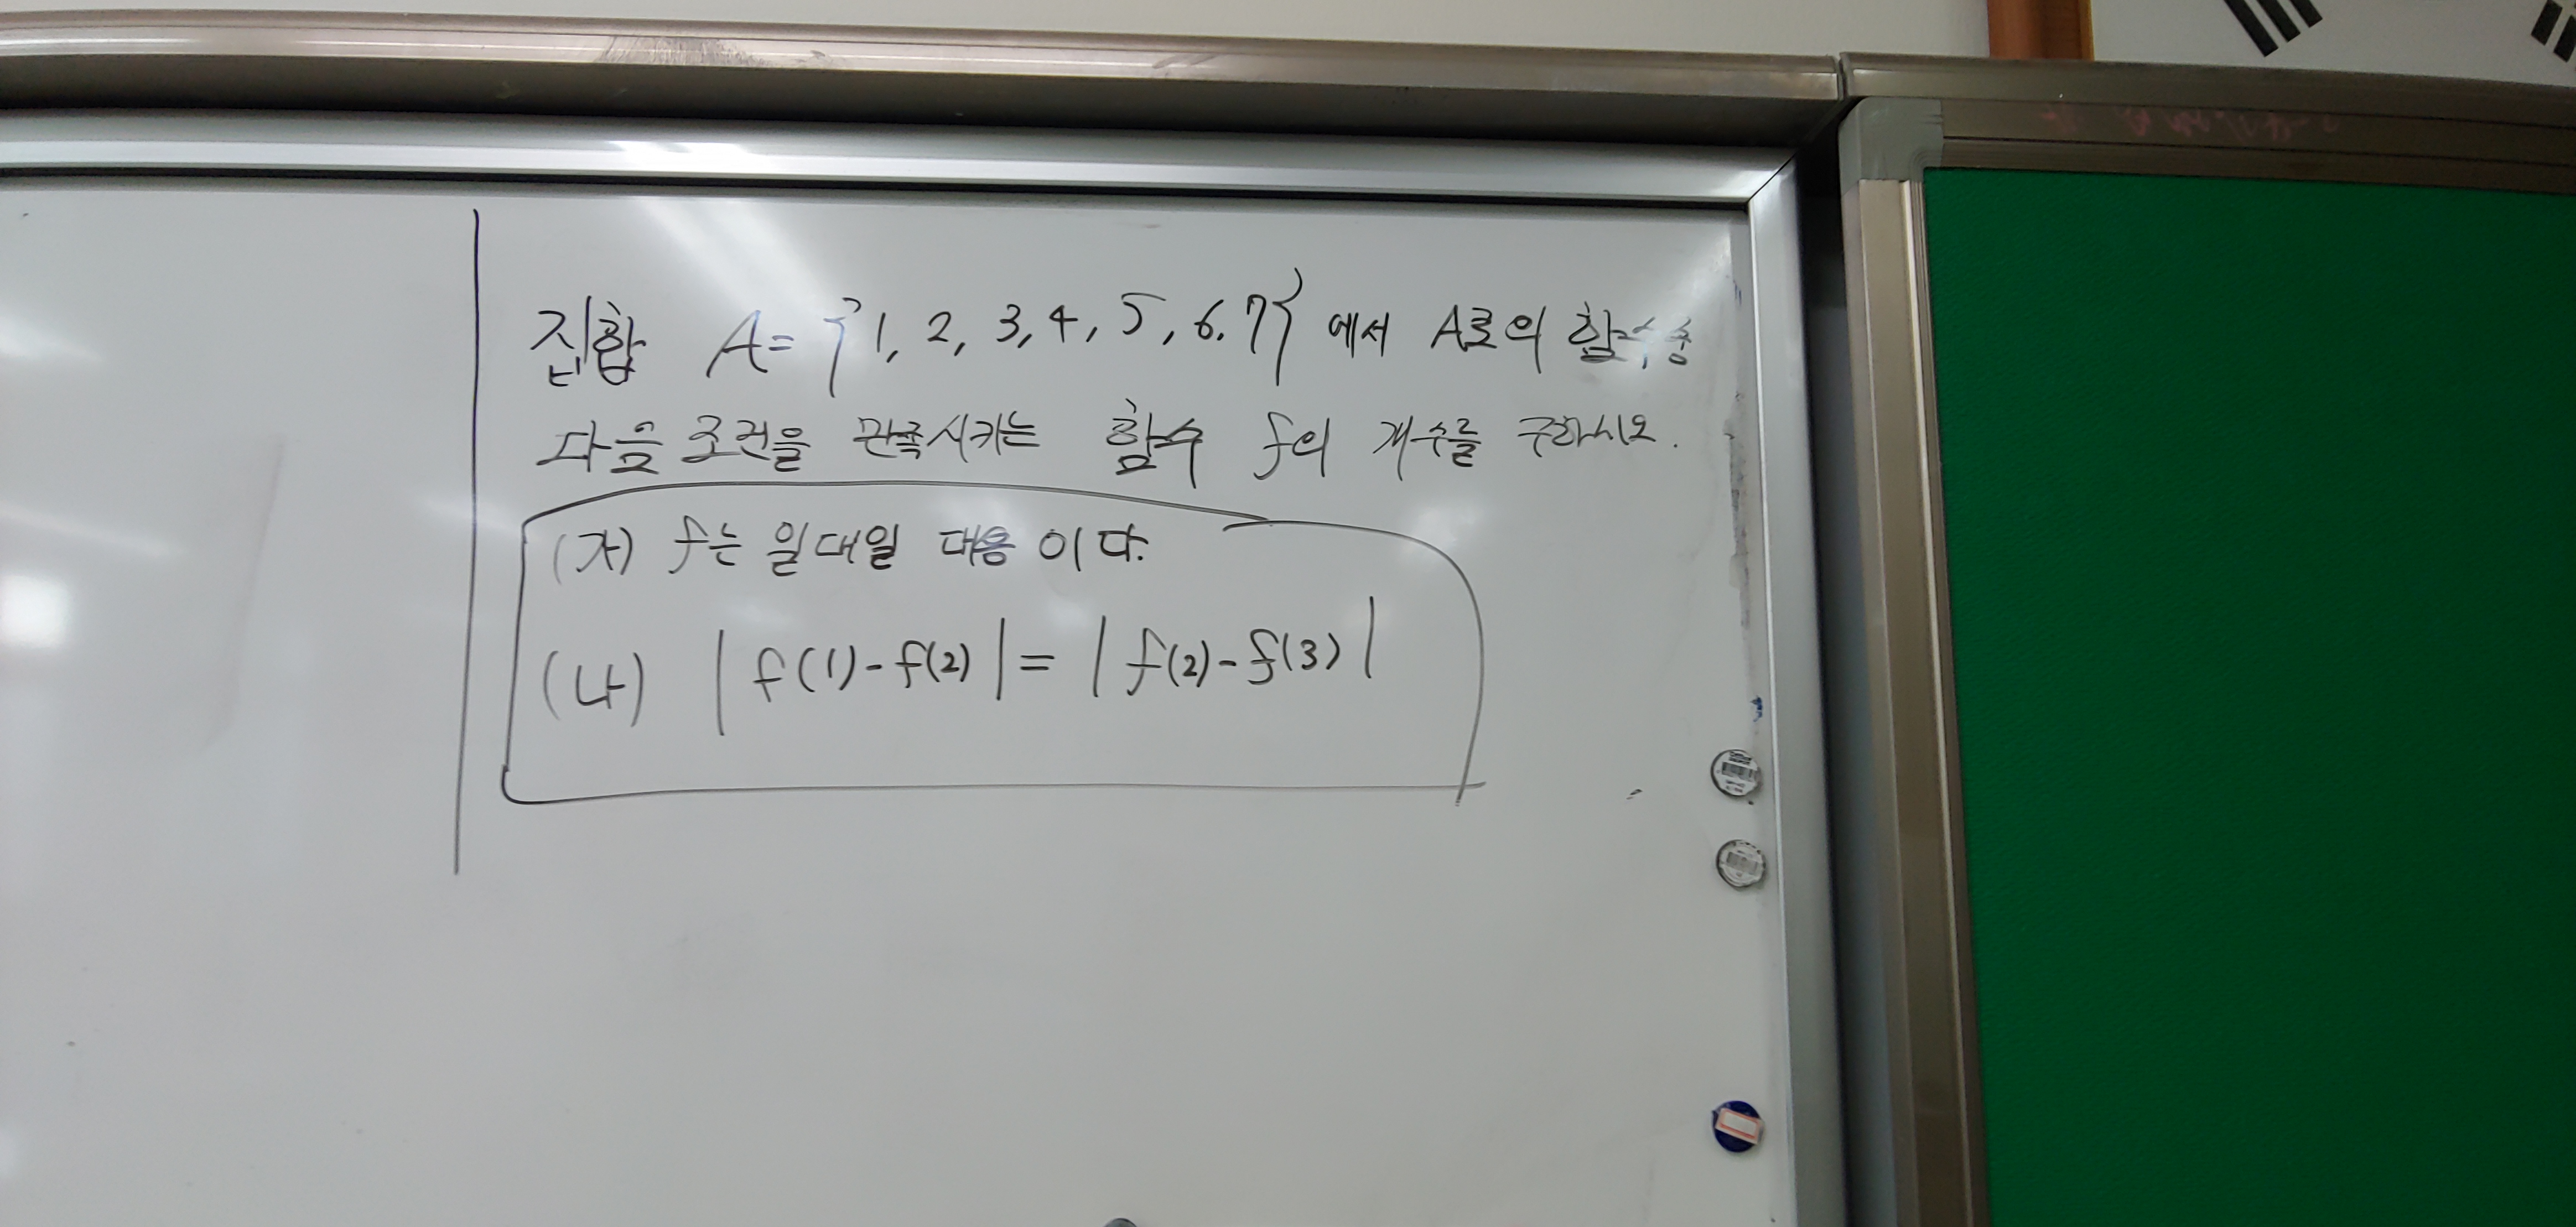 집합 A = {1, 2, 3, 4, 5, 6, 7} 에서 A로의 함수중
다음 조건을 만족시키는 함수 f의 개수를 구하시오.
(가) f는 일대일 대응이다.
(나) |f(1)-f(2)| = |f(2)-f(3)|